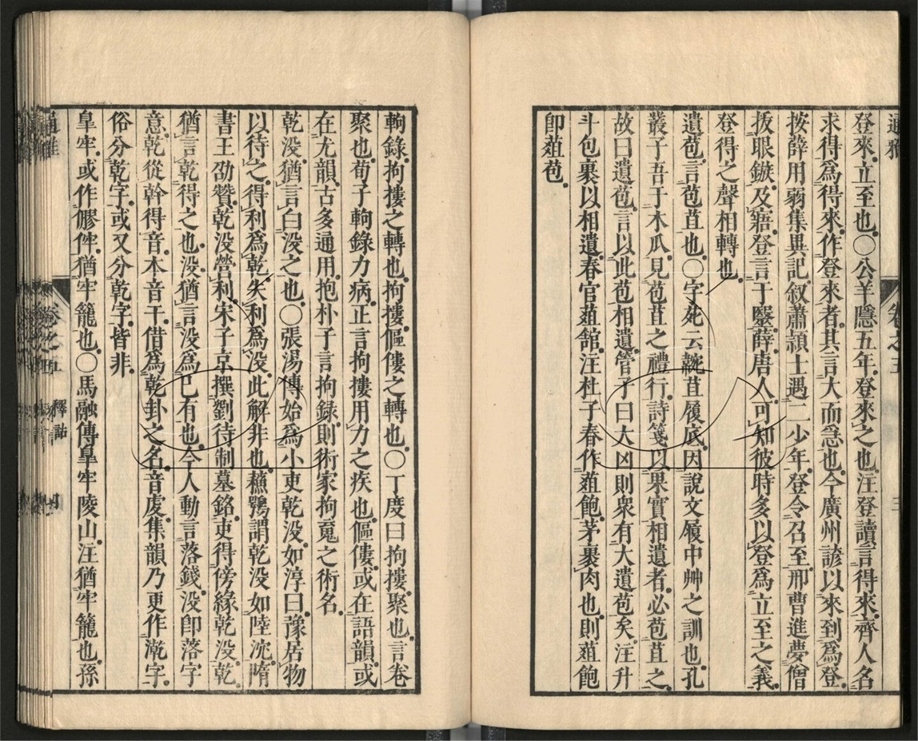 通雅
卷之五
三
登來立至也○公羊隱五年登來之也注登讀言得來齊人名
求得爲得來作登來者其言大而急也今廣州諺以來到爲登
按薛用弱集異記叙蕭頴士遇二少年登令召至邢曹進夢僧
拔眼鏃及寤登言于毉薛唐人可知彼時多以登爲立至之義
登得之聲相轉也
遺苞言苞苴也○字苑云䩫苴履底因說文履中艸之訓也孔
叢子吾于木瓜見苞苴之禮行詩箋以果實相遺者必苞苴之
故曰遺苞言以此苞相遺管子曰大凶則衆有大遺苞矣注升
斗包裹以相遺春官葅館注杜子春作葅飽茅裹肉也則葅飽
卽葅苞
軥錄拘摟之轉也拘摟傴僂之轉也○丁度曰拘摟聚也言卷
聚也荀子軥錄力病正言拘摟用力之疾也傴僂或在語韻或
在尤韻古多通用抱朴子言拘錄則術家拘䰟之術名
乾沒猶言白沒之也○張湯傳始爲小吏乾沒如淳曰豫居物
以待之得利爲乾失利爲沒此解非也蘓鶚謂乾沒如陸沈隋
書王劭贊乾沒營利宋子京撰劉待制墓銘吏得傍緣乾沒乾
猶言乾得之也沒猶言沒爲巳有也今人動言落錢沒卽落字
意乾從幹得音本音干借爲乾卦之名音虔集韻乃更作漧字
俗分乹字或又分乾字皆非
皐牢或作膠倅猶牢籠也○馬融傳皐牢陵山注猶牢籠也孫
通雅
卷之五
釋詁
四